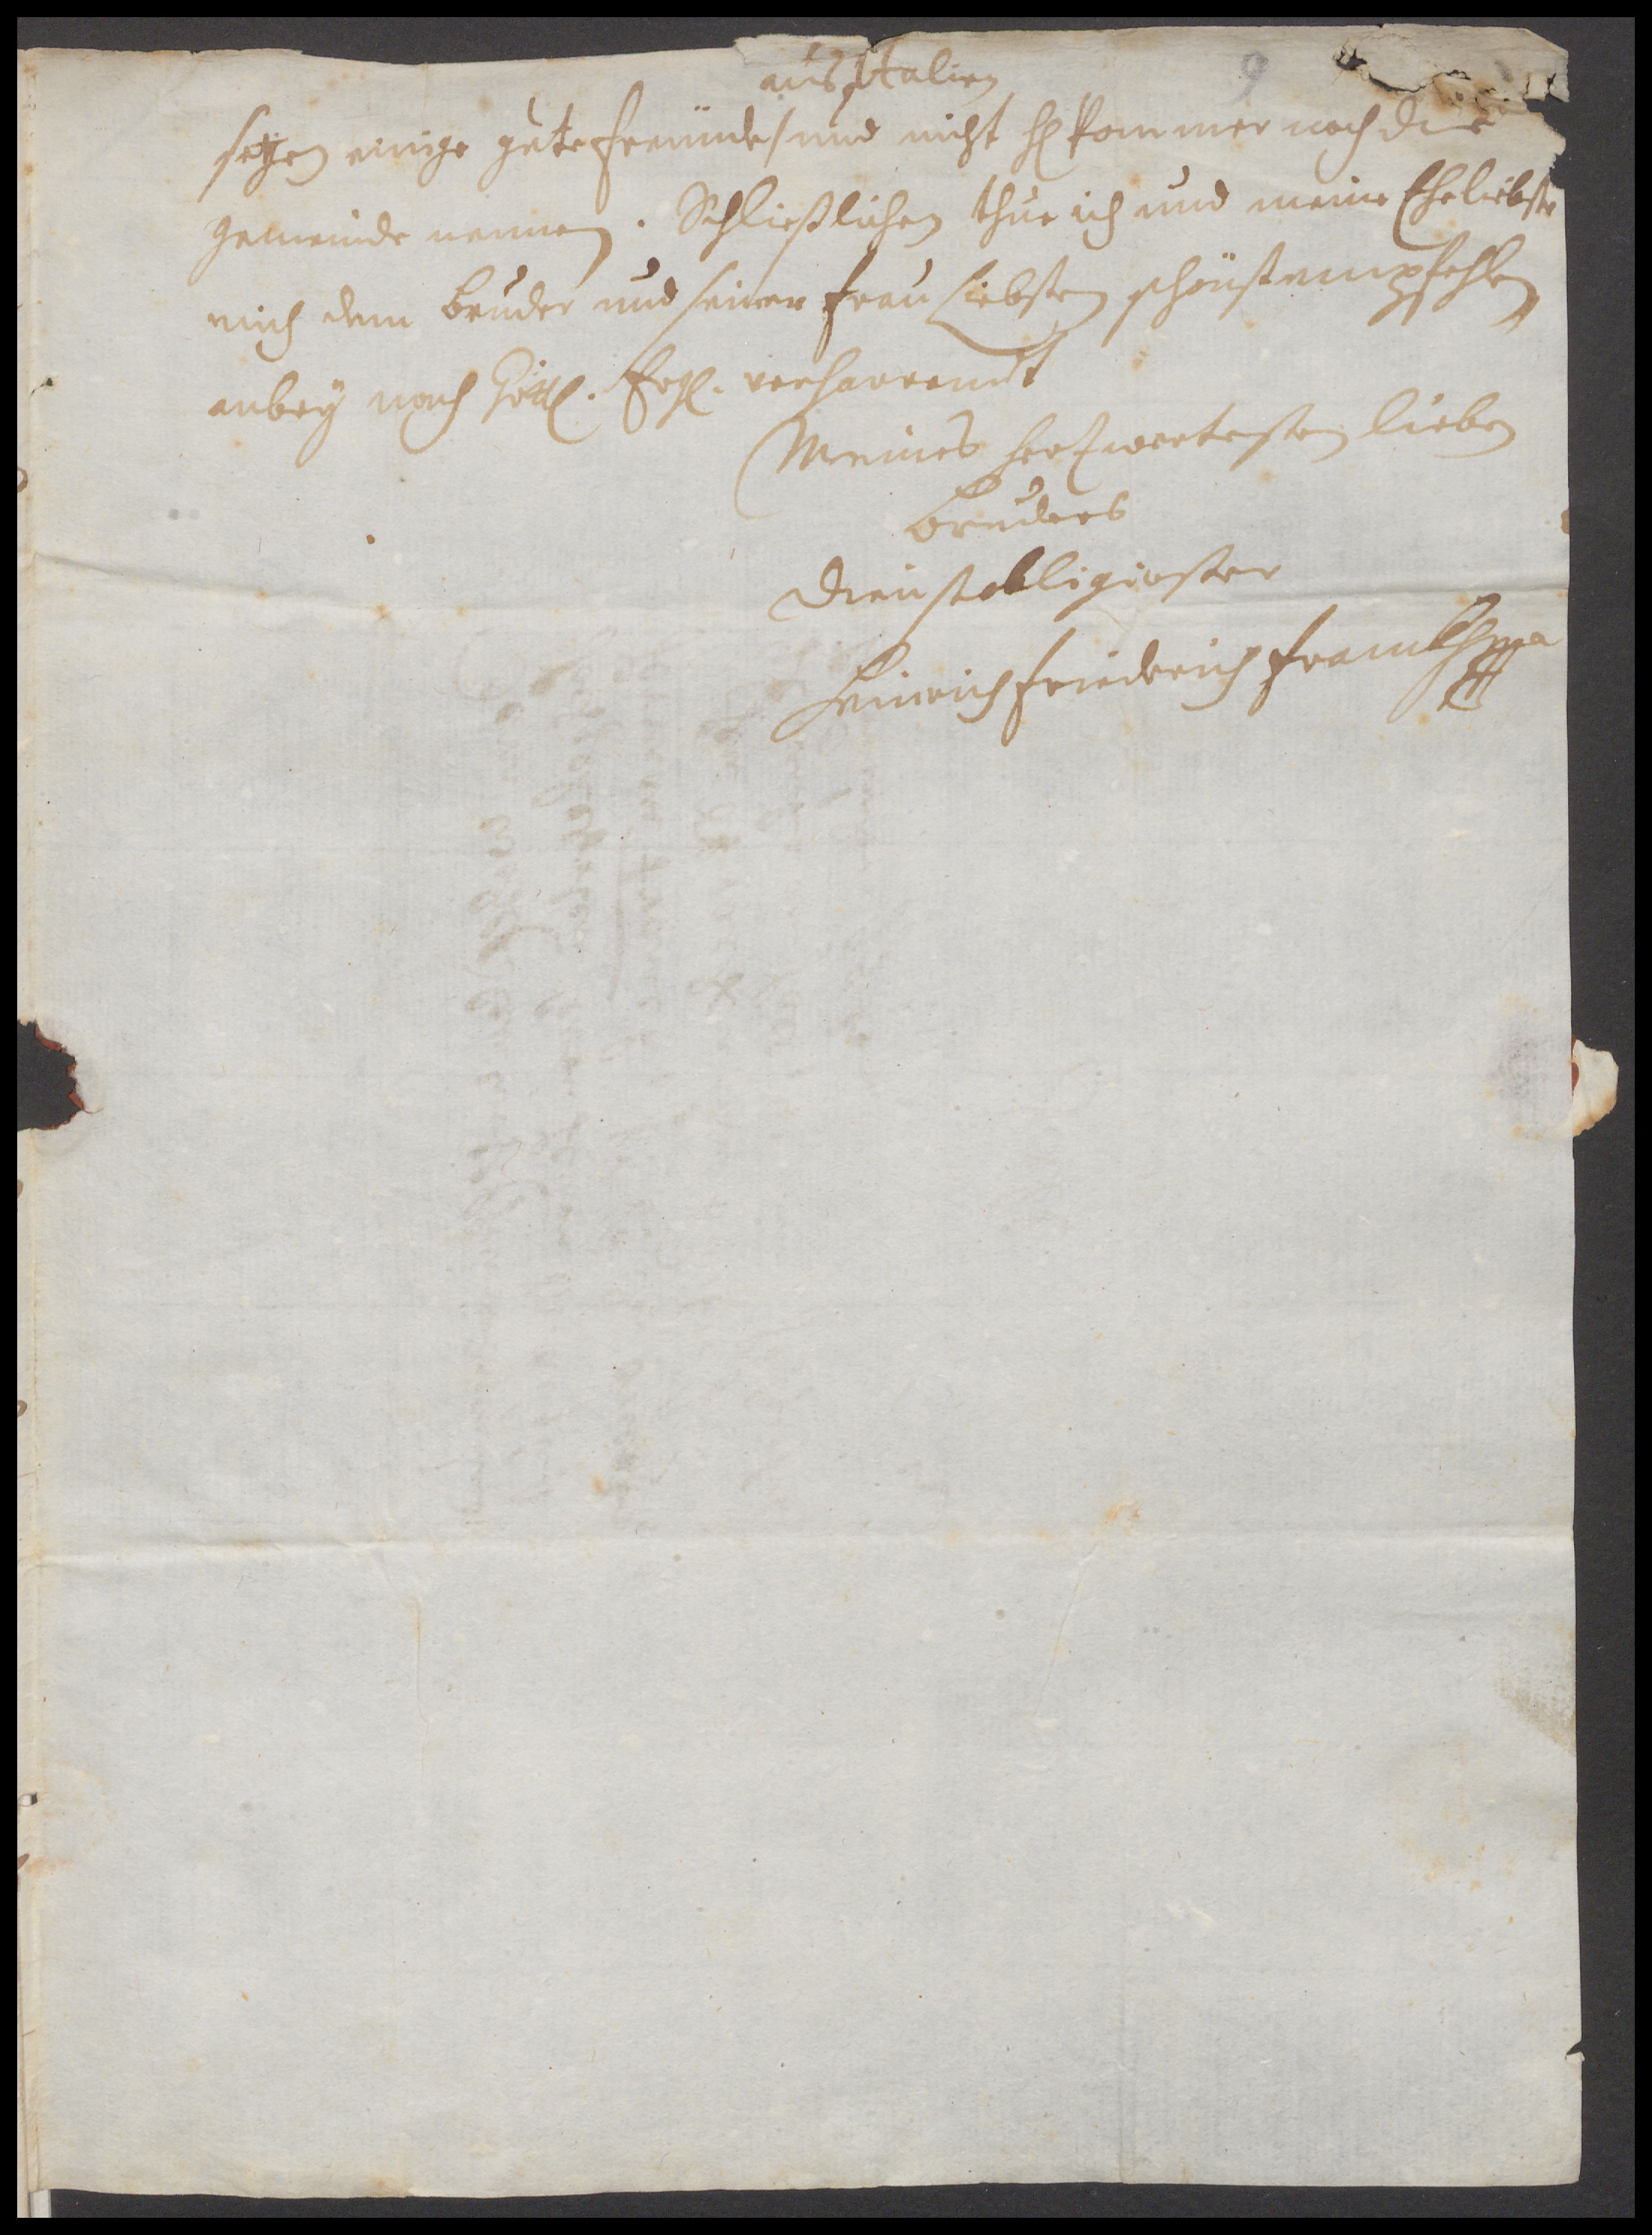 aus Italien
9
setzen einige gute freunde/ und nicht H Pommer noch die
gemeinde nennen. Schließlichen thue ich und meine Eheliebste
mich dem Bruder und seiner frau Liebsten schönst empfehlen
anbey nach Göttl. Erge. verharrendt
Meines hertzwertesten lieben
Bruders
Dienstobligiester
Heinrich friederich